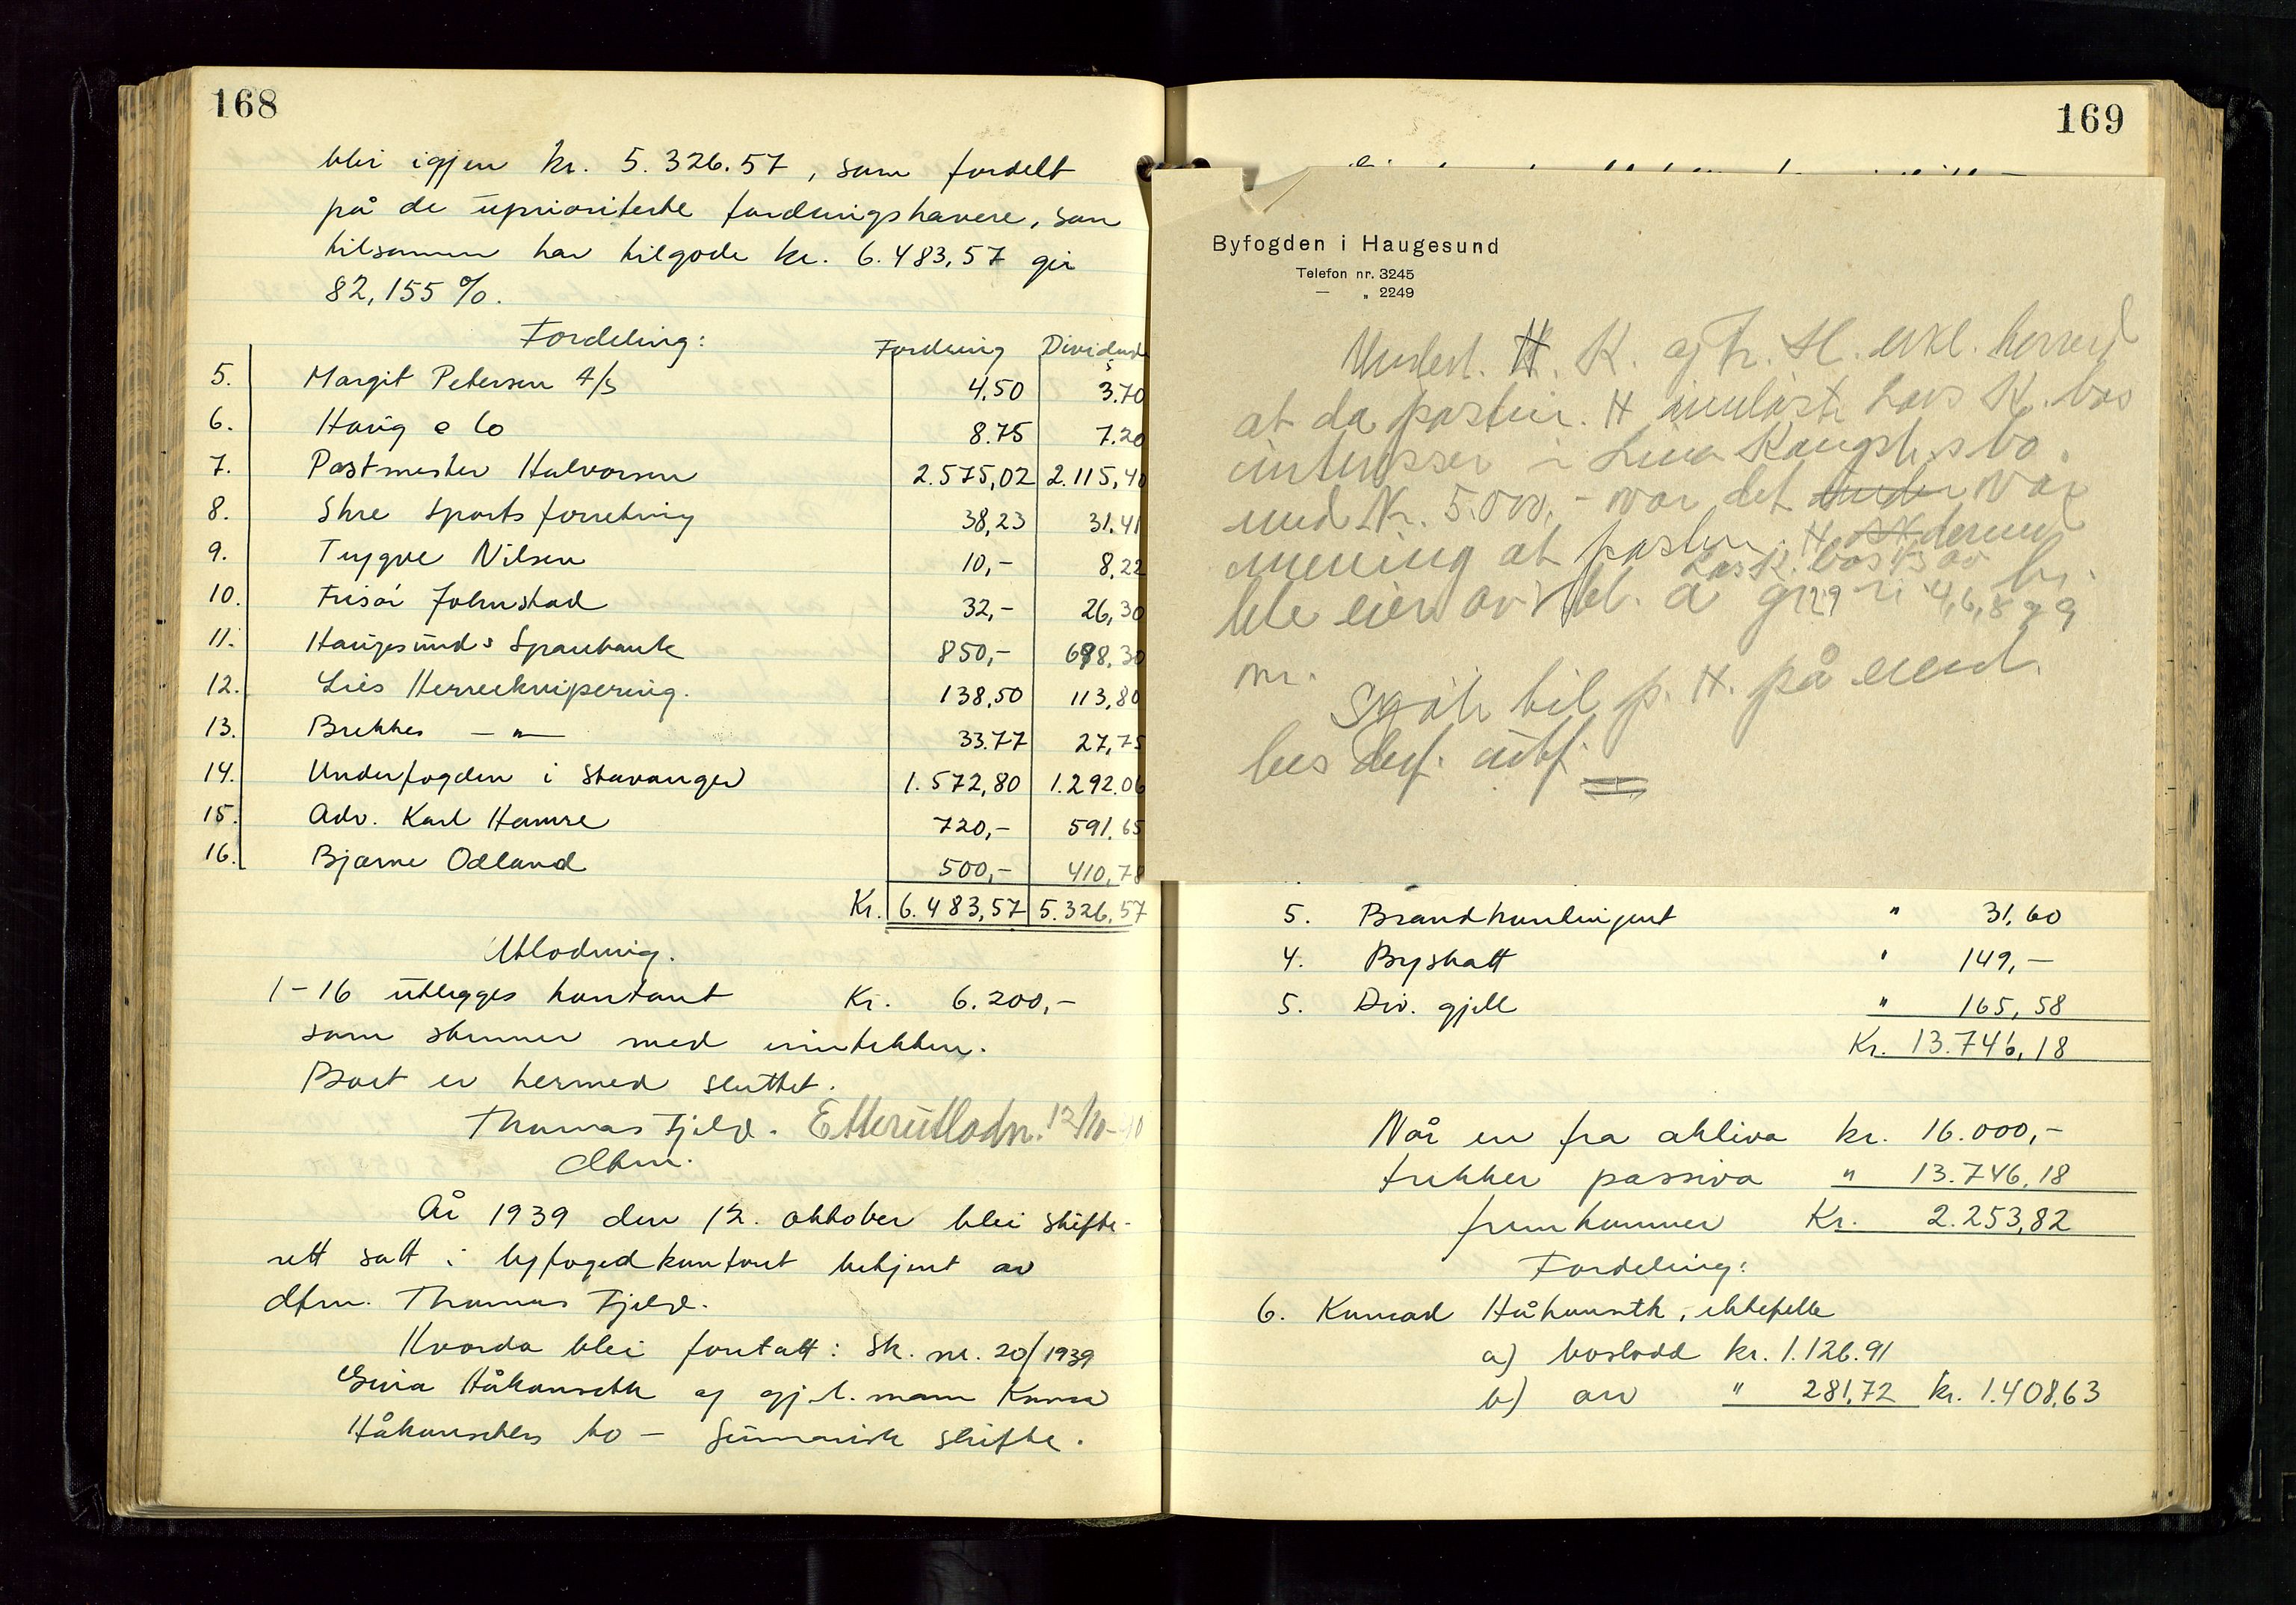 168
blir igjen kr. 5.326.57, som fordelt
på de uprioriterte fordringshavere, som
tilsammen har tilgode kr. 6.483,57 gir
82,155 %.
Fordeling: Fordring Dividende
5. Margit Petersen A/S 4,50 3.70
6. Haug & Co 8.75 7.20
7. Postmester Halvorsen 2.575,02 2.115,40
8. Skre Sportsforretning 38,23 31.41
9. Trygve Nilsen 10,- 8,22
10. Frisør Johnstad 32,- 26,30
11. Haugesunds Sparebank 850,- 698,30
12. Lies Herreekvipering. 138,50 113,80
13. Brekkes — " — 33.77 27,75
14. Underfogden i Stavanger 1.572,80 1.292.06
15. Adv. Karl Hamre 720,- 591.65
16. Bjarne Odland 500,- 410,78
Kr. 6.483,57 5.326,57
Utlodning.
1-16 utlegges kontant Kr. 6.200,-
som stemmer med inntekten.
Boet er hermed sluttet.
Thomas Fjeld. Etterutlodn. 12/10-40
dfm.
År 1939 den 12. oktober blei skifte-
rett satt i byfogedkontoret betjent av
dfm. Thomas Fjeld.
Hvorda blei foretatt: Sk. nr. 20/1939
Håkonseth og gj.l. mann
Håkonseths bo — Summarisk skifte.
169
Byfogden i Haugesund
Telefon nr. 3245
— „ 2249
Undert. H. K. og Fr. H. erkl. herved
at da pastor. H innløste Lars K. bos
interesser i Lina s bo.
med Kr. 5.000,- var det var
mening at pastor H. dermed
Lars K. bos av
ble eier av bl. a. 4, 6, 8 og 9
nr.
Skjøte til p. H. på
bes utf.
5. Brandkontingent " 31,60
4. Byskatt " 149,-
5. Div. gjeld " 165,58
Kr. 13.746,18
Når en fra aktiva kr. 16.000,-
trekker passiva " 13.746,18
fremkommer Kr. 2.253,82
Fordeling:
6. Konrad Håkonseth, ektefelle
a) boslodd kr. 1.126.91
b) arv " 281,72 kr. 1.408,63